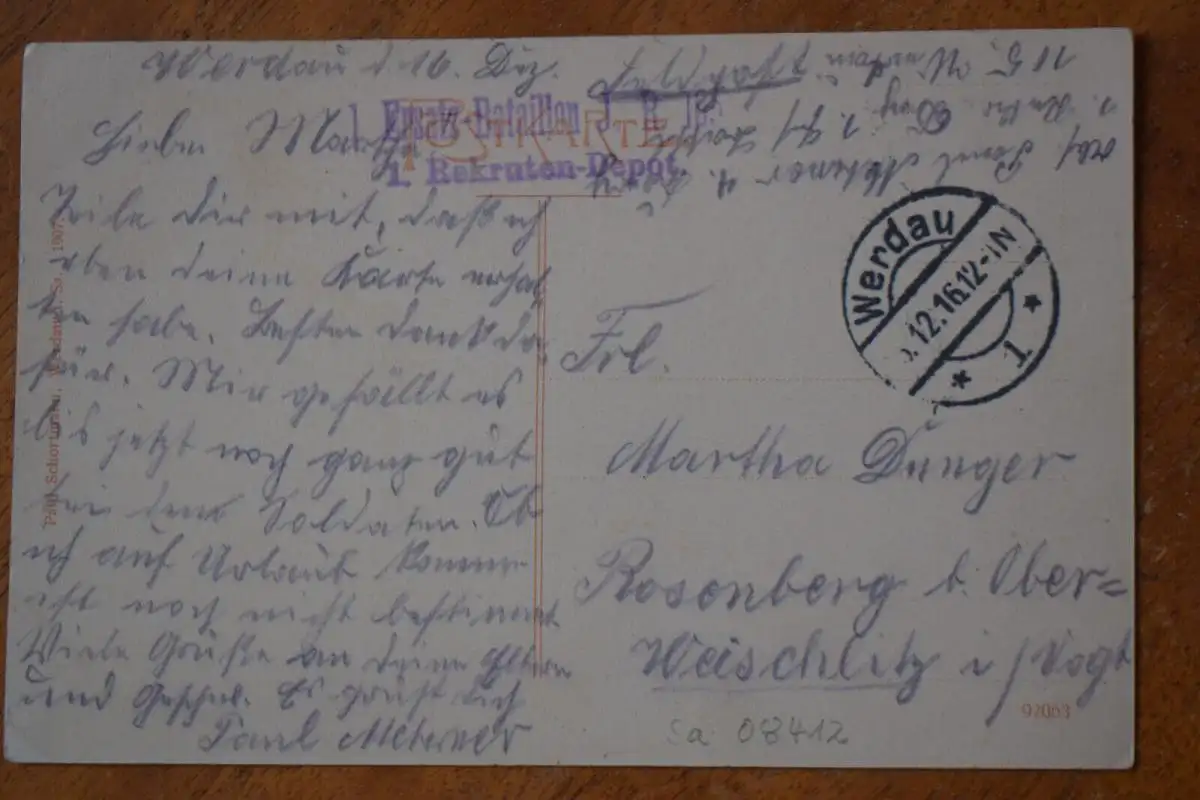 Werdau d 16. Dez.
Feldpost
Ersatz-Bataillon J. R.
POSTKARTE
1. Rekruten-Depot
Lieben
Teile Dir mit, daß ich
eben deine Karte erhal
ten habe. Besten Dank da
für. Mir gefällt es
bis jetzt noch ganz gut
bei den Soldaten. Ob
ich auf Urlaub komme
ist noch nicht bestimmt
Viele Grüße an deine Eltern
und Geschw. Es grüßt dich
Paul
Paul Schortmann, Werdau i. Sa. 1907
Werdau
.12.16.12-1N
* 1 *
Frl.
Martha Dunger
Rosenberg b. Ober=
Weischlitz i/Vogt
92063
Sa 08412